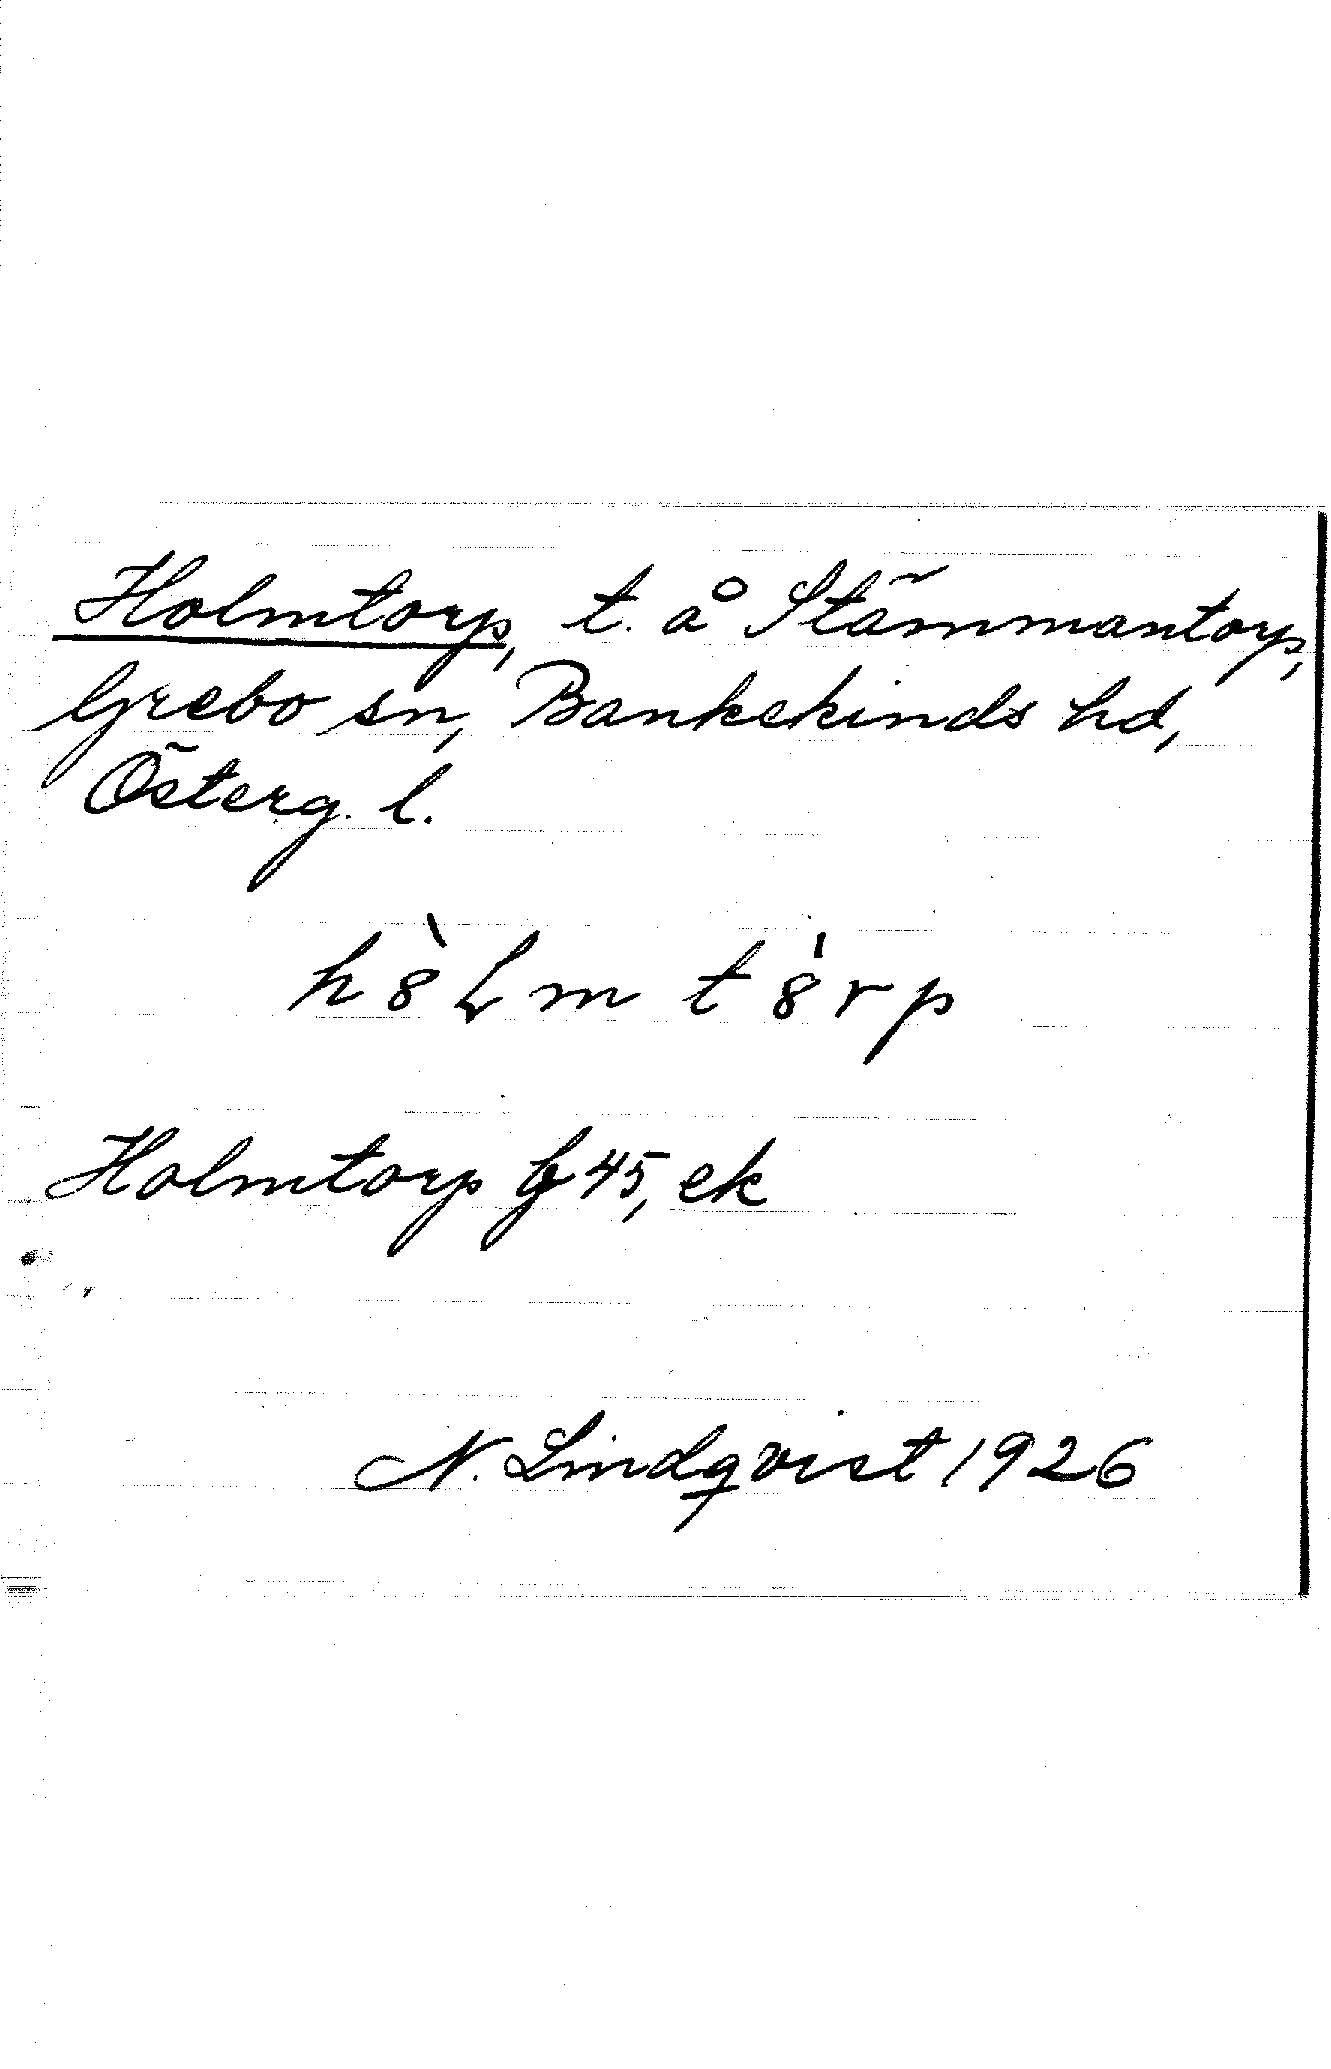 Holmtorp, t. å Stämmantorp,
Grebo sn, Bankekinds hd,
Österg. l.
h8̀Lm t8̀rp
Holmtorp G 45, ek
N. Lindqvist 1926